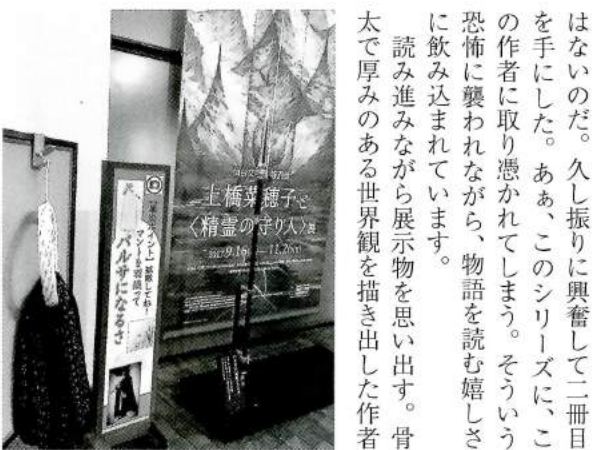 はないのだ。久し振りに興奮して二冊目
を手にした。あぁ、このシリーズに、こ
の作者に取り憑かれてしまう。そういう
恐怖に襲われながら、物語を読む嬉しさ
に飲み込まれています。
読み進みながら展示物を思い出す。骨
太で厚みのある世界観を描き出した作者
上橋菜穂子と
〈精霊の守り人〉展
2017.9.16 11.26
マントを羽織って
バルサになるさ